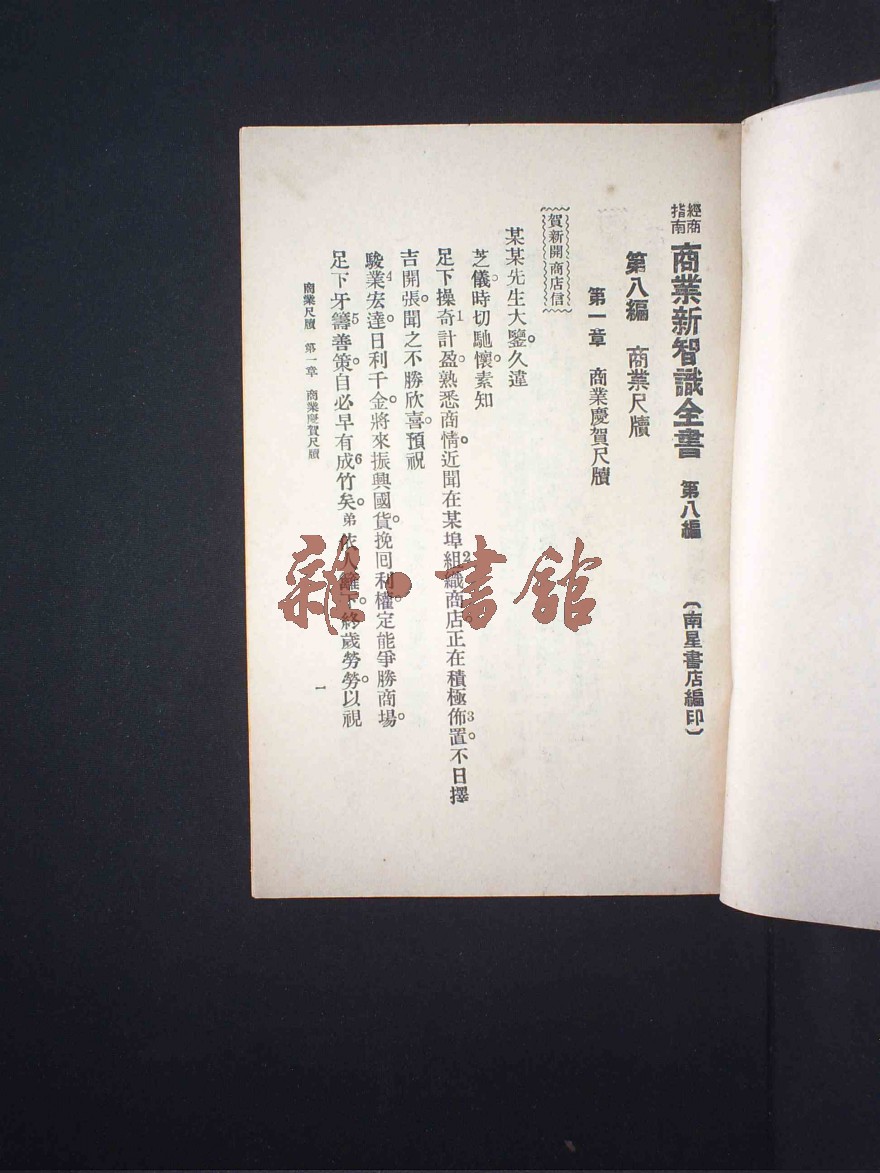 經商指南 商業新智識全書 第八編 〔南星書店編印〕
第八編 商業尺牘
第一章 商業慶賀尺牘
賀新開商店信
某某先生大鑒。久違
芝儀。時切馳懷。素知
足下操奇1計盈。熟悉商情。近聞在某埠2組織商店。正在積極佈3置。不日擇
吉開張。聞之不勝欣喜。預祝
駿4業宏達。日利千金。將來振興國貨。挽回利權。定能爭勝商場。
足下牙5籌善策。自必早有成6竹矣。弟依人籬下。終歲勞勞。以視
商業尺牘 第一章 商業慶賀尺牘 一
雜·書館